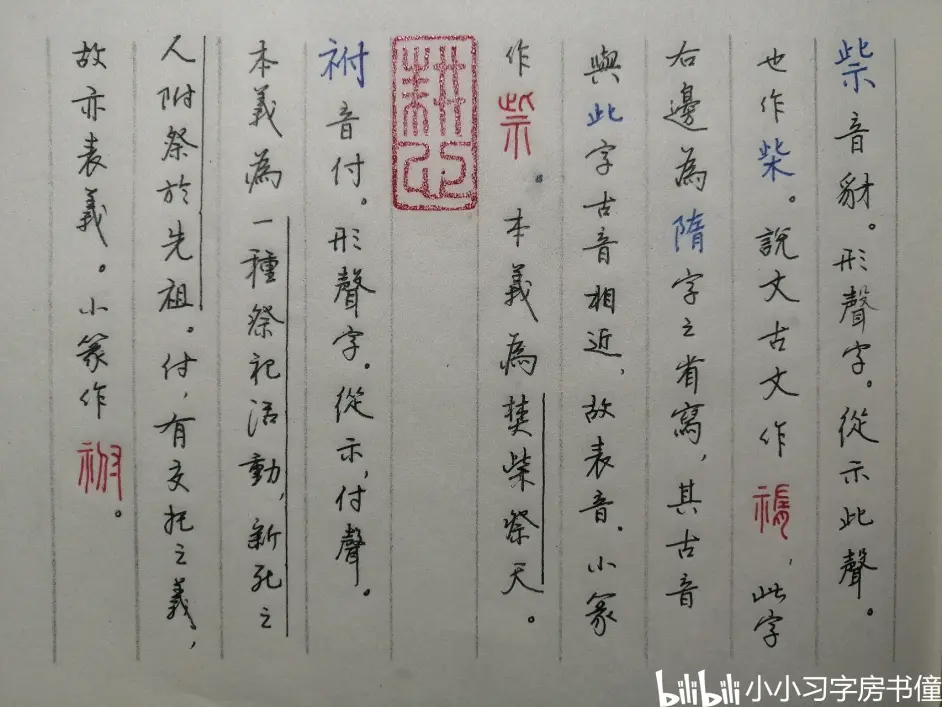 祡音豺。形聲字。從示此聲。
也作柴。說文古文作𥛴，此字
右邊為隋字之省寫，其古音
與此字古音相近，故表音。小篆
作祡。本義為焚柴祭天。
祔音付。形聲字。從示，付聲。
本義為一種祭祀活動，新死之
人附祭於先祖。付，有交托之義，
故亦表義。小篆作祔。
bilibili 小小习字房书僮